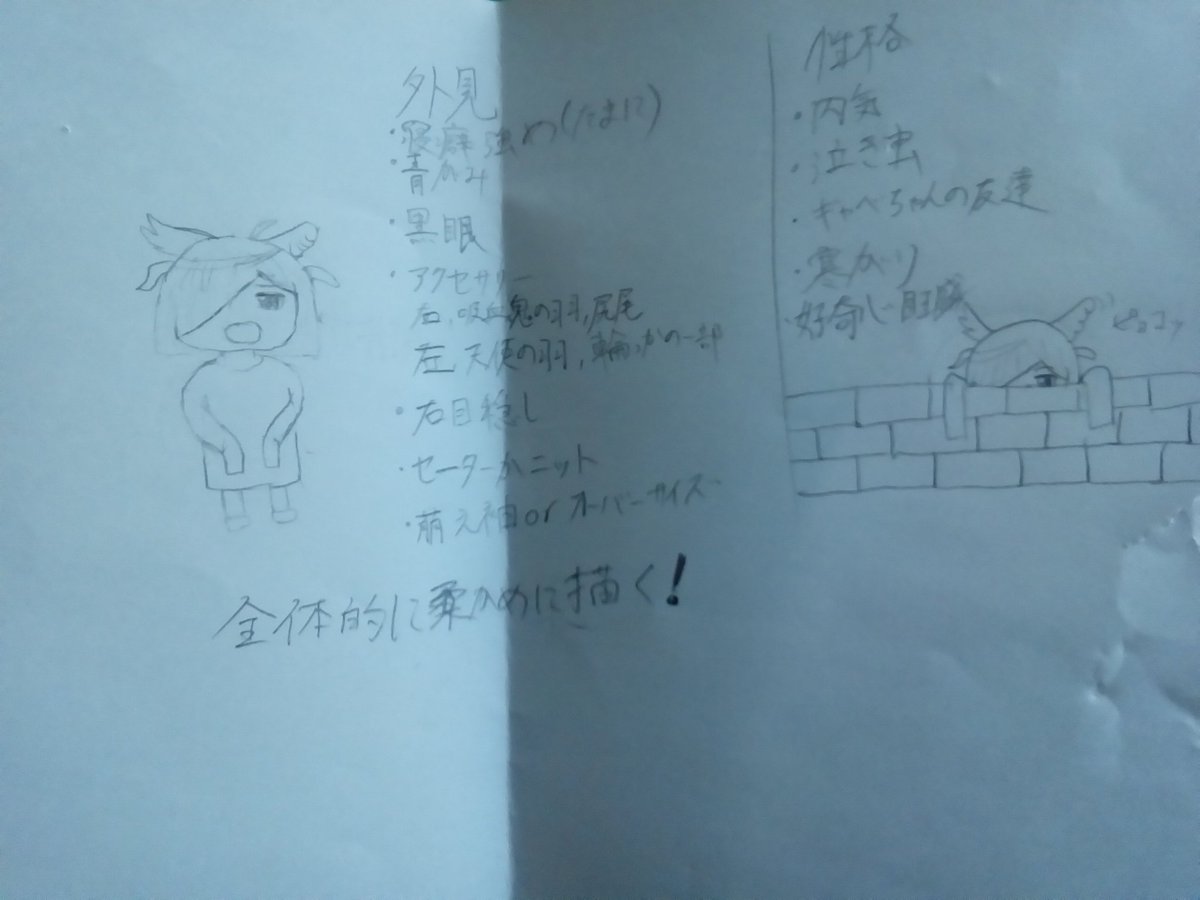 外見
・寝癖強め(たまに)
・青がみ
・黒眼
・アクセサリー
右、吸血鬼の羽,尻尾
左、天使の羽,輪っかの一部
・右目隠し
・セーターかニット
・萌え袖orオーバーサイズ
全体的に柔かめに描く!
性格
・内気
・泣き虫
・キャベちゃんの友達
・寒がり
・好奇心旺盛
ピョコッ